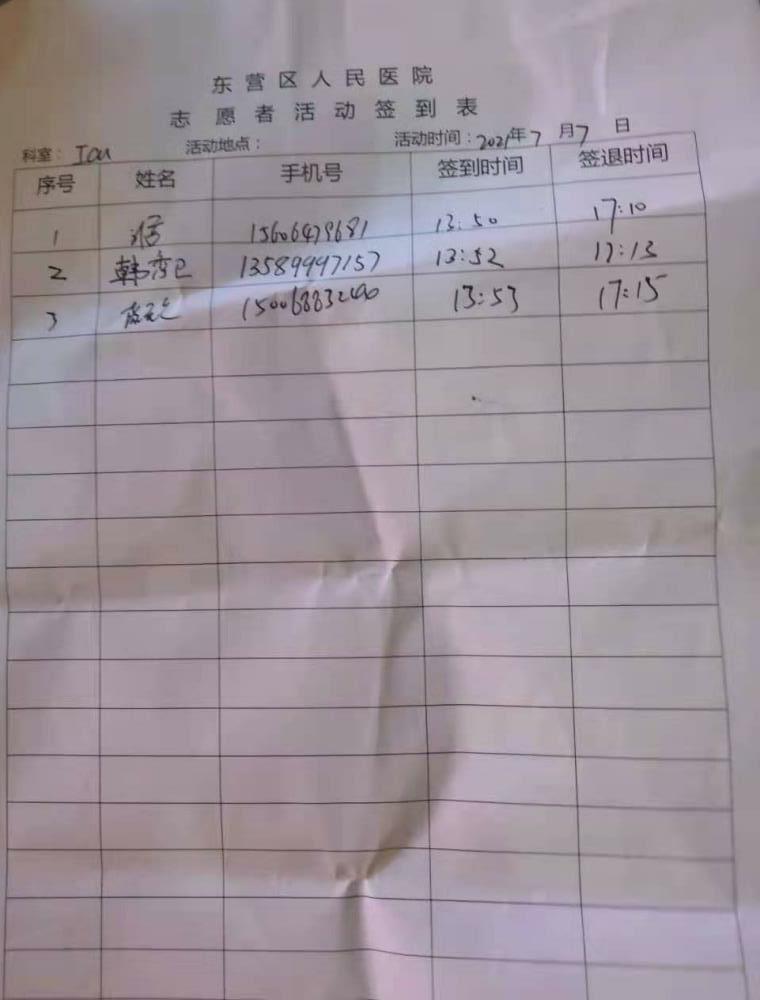 东营区人民医院
志愿者活动签到表
科室：Icu 活动地点： 活动时间：2021年7月7日
序号 姓名 手机号 签到时间 签退时间
1 15606479681 13:50 17:10
2 韩 13589997157 13:52 17:13
3 13:53 17:15